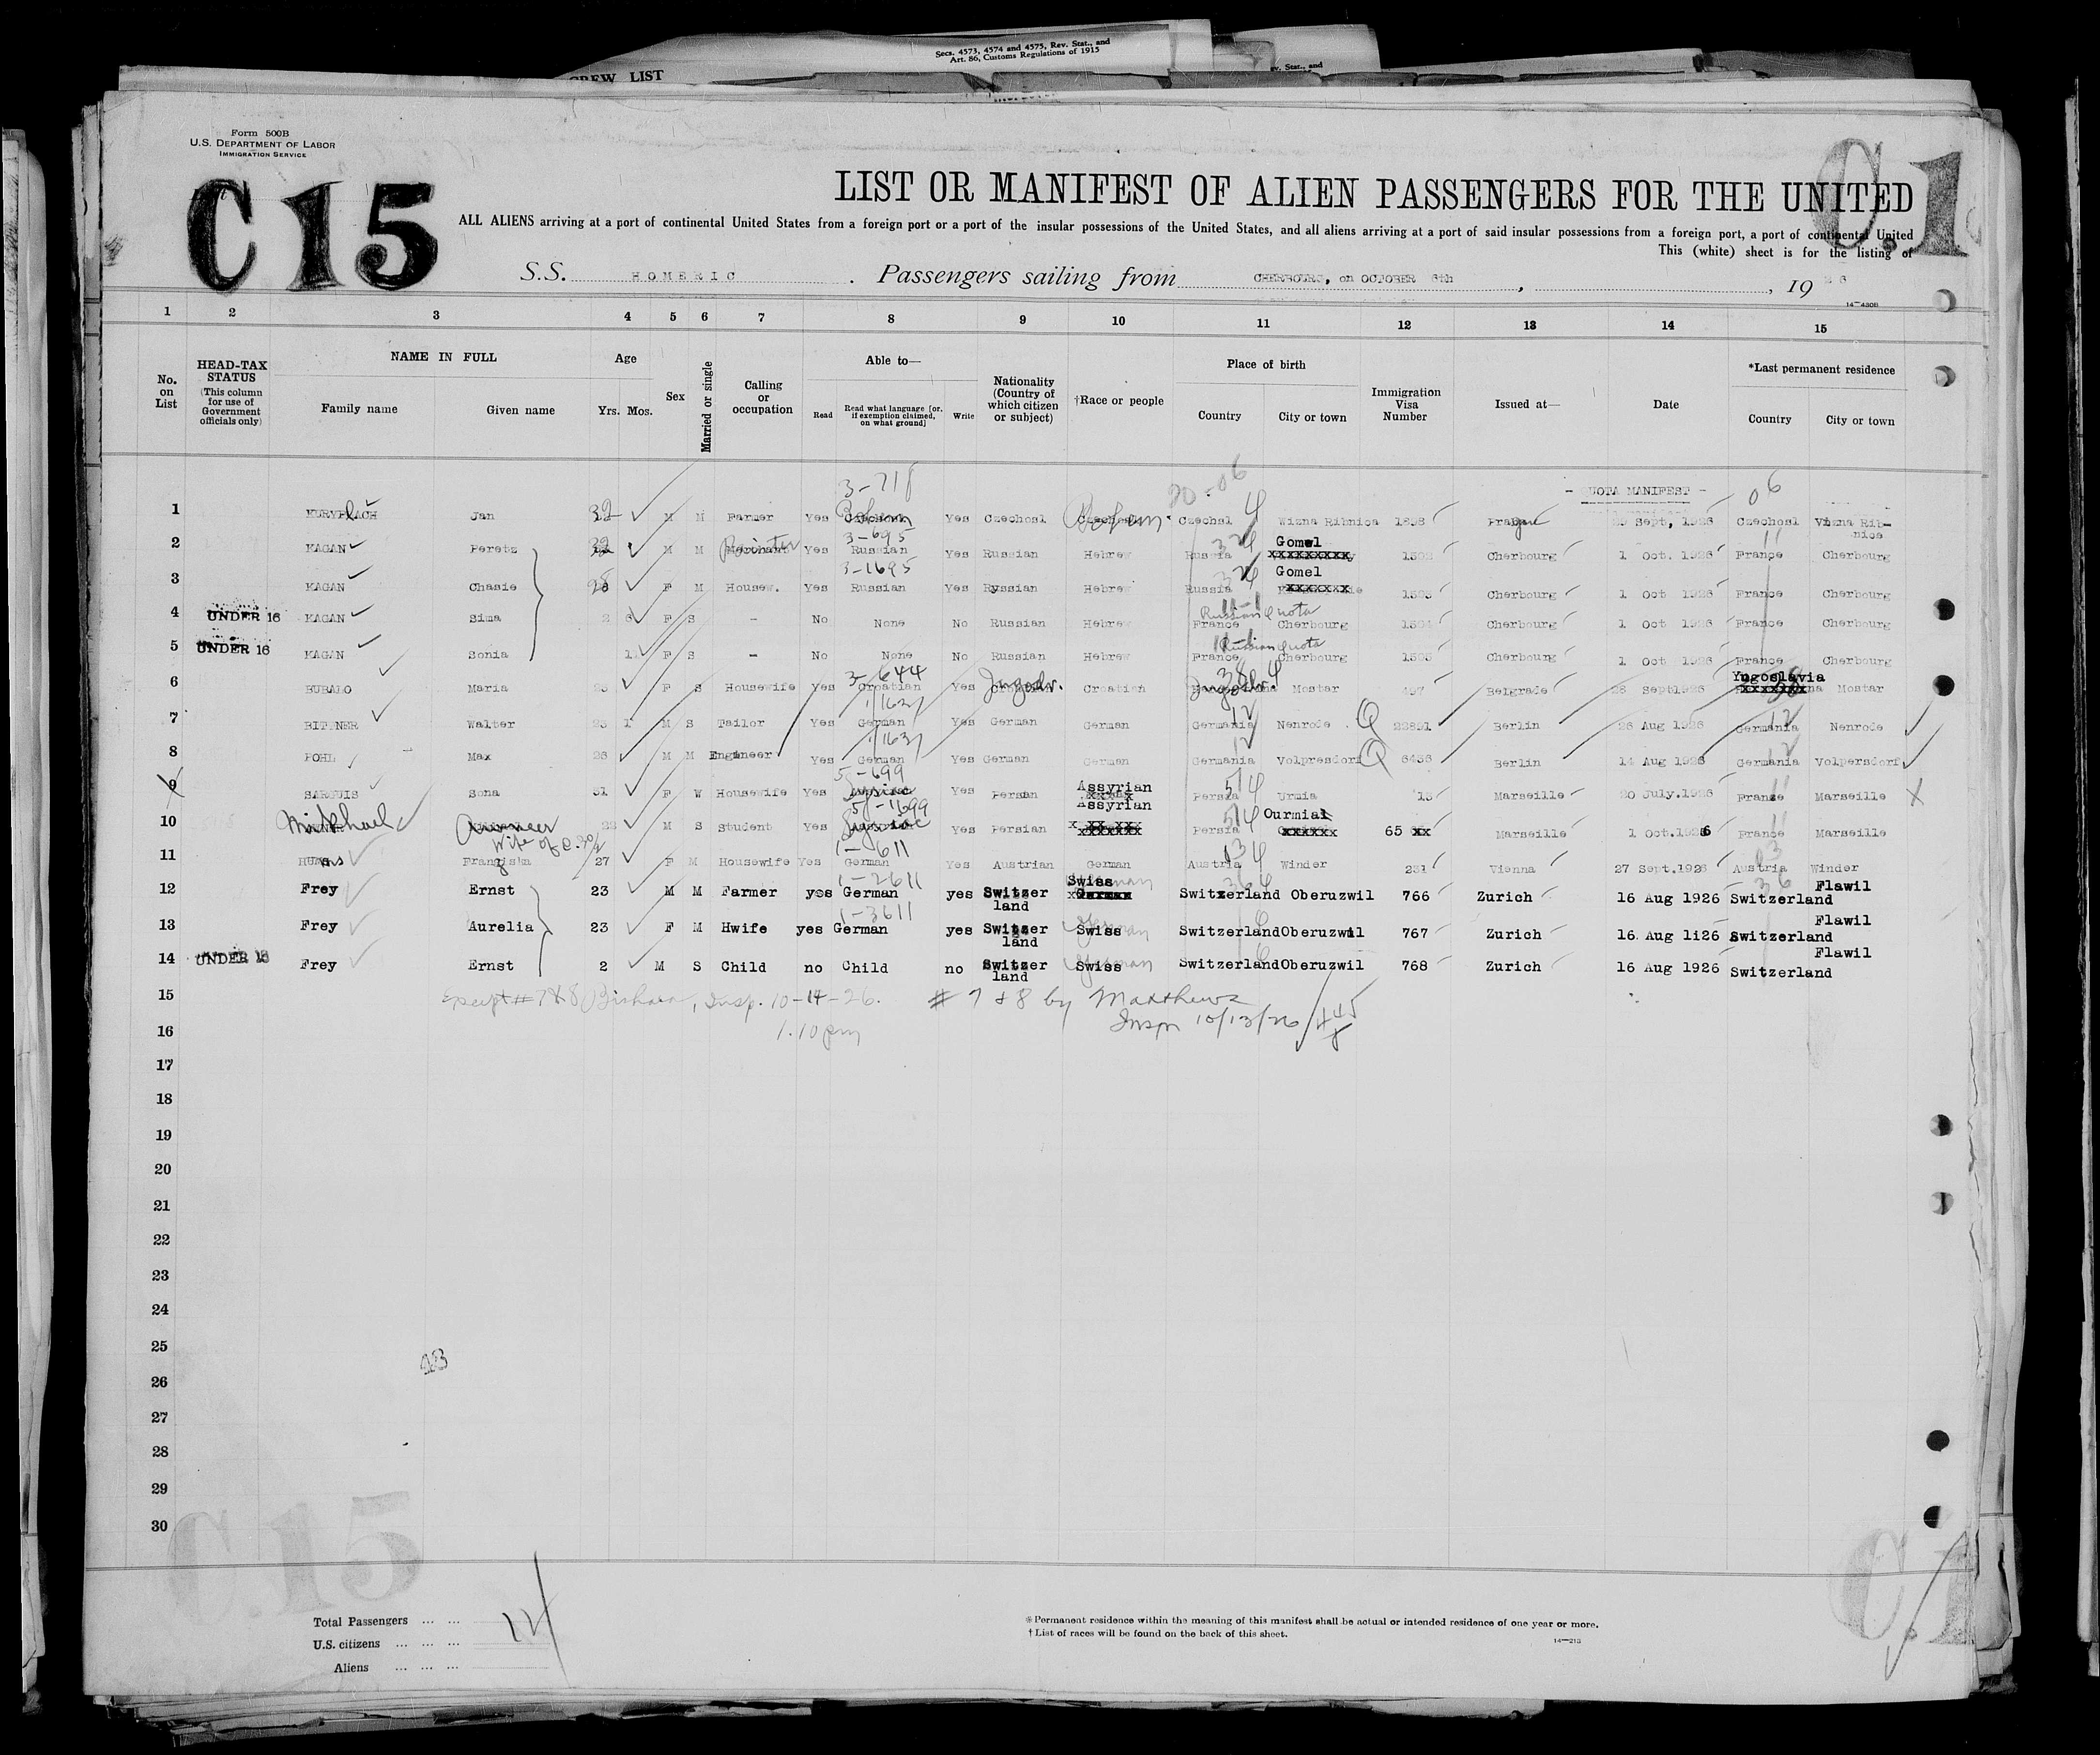 Secs. 4573, 4574 and 4575, Rev. Stat., and
Art. 86, Customs Regulations of 1915
CREW LIST
ev. Stat., and
Form 500B
U.S. DEPARTMENT OF LABOR
IMMIGRATION SERVICE
C15
C.1
LIST OR MANIFEST OF ALIEN PASSENGERS FOR THE UNITED
ALL ALIENS arriving at a port of continental United States from a foreign port or a port of the insular possessions of the United States, and all aliens arriving at a port of said insular possessions from a foreign port, a port of continental United
This (white) sheet is for the listing of
S.S. HOMERIC. Passengers sailing from CHERBOURG, on OCTOBER 6th, , 19 26
14—480B
1 2 3 4 5 6 7 8 9 10 11 12 13 14 15
No. on List
HEAD-TAX STATUS
(This column for use of Government officials only)
NAME IN FULL
Family name Given name
Age
Yrs. Mos.
Sex
Married or single
Calling or occupation
Able to—
Read Read what language [or, if exemption claimed, on what ground] Write
Nationality (Country of which citizen or subject)
†Race or people
Place of birth
Country City or town
Immigration Visa Number
Issued at—
Date
*Last permanent residence
Country City or town
3-718 20-06 - QUOTA MANIFEST - 06
1 Jan 32 M M Farmer Yes Yes Czechosl Czechsl 4 Wizna Ribnica 1898 Sept, 1926 Czechosl Vizna Rib-
nice
3-695 Gomel 11
2 KAGAN Peretz 32 M M Yes Russian Yes Russian Hebrew Russia xxxxxxxxx 1502 Cherbourg 1 Oct. 1926 France Cherbourg
3-1695 Gomel
3 KAGAN Chasie 28 F M Housew. Yes Russian Yes Ryssian Hebrew Russia xxxxxxx 1503 Cherbourg 1 Oct 1926 France Cherbourg
Russian Quota
4 UNDER 16 KAGAN Sima 2 6 F S - No None No Russian Hebrew France Cherbourg 1504 Cherbourg 1 Oct 1926 France Cherbourg
Russian Quota
5 UNDER 16 KAGAN Sonia 11 F S - No None No Russian Hebrew France Cherbourg 1505 Cherbourg 1 Oct 1926 France Cherbourg
3-644 38 4 Yugoslavia
6 BUBALO Maria F S Housewife Yes Croatian Yes Jugoslv. Croatian Mostar 497 Belgrade 28 Sept1926 Mostar
1/1637 12
7 BITTNER Walter 23 1 M S Tailor Yes German Yes German German Germania Nenrode Q 22891 Berlin 26 Aug 1926 Germania Nenrode
1/1637 12
8 POHL Max 26 M M Engineer Yes German Yes German German Germania Volpresdorf Q 6436 Berlin 14 Aug 1926 Germania Volpersdorf
5-699 Assyrian
9 SARGUIS Sona 51 F W Housewife Yes Yes Persian xxxxx Persia 514 Urmia 13 Marseille 20 July.1926 France Marseille X
5-1699 Assyrian Ourmiah
10 Mikhael M S Student Yes Syriac Yes Persian xxxxxxx Persia 514 xxxxxx 65 xx Marseille 1 Oct.1926 France Marseille
Wife of C. 1-611
11 Franziska 27 F M Housewife Yes German Yes Austrian German Austria Winder 231 Vienna 27 Sept.1926 Austria Winder
1-2611 Swiss 36 Flawil
12 Frey Ernst 23 M M Farmer yes German yes Switzer
land German Switzerland Oberuzwil 766 Zurich 16 Aug 1926 Switzerland
1-3611 Flawil
13 Frey Aurelia 23 F M Hwife yes German yes Switzer
land Swiss German Switzerland Oberuzwil 767 Zurich 16. Aug 1i26 Switzerland
Flawil
14 UNDER 16 Frey Ernst 2 M S Child no Child no Switzer
land Swiss German Switzerland Oberuzwil 768 Zurich 16 Aug 1926 Switzerland
15 Except # 7 & 8 Bishara, Insp. 10-14-26. # 7 & 8 by Matthews
16 1.10 pm Inspr 10/13/26
17
18
19
20
21
22
23
24
25
26
27
28
29
30
C.15
C.1
Total Passengers ... ... 14
U.S. citizens ... ... ...
Aliens ... ... ...
* Permanent residence within the meaning of this manifest shall be actual or intended residence of one year or more.
† List of races will be found on the back of this sheet.
14—213